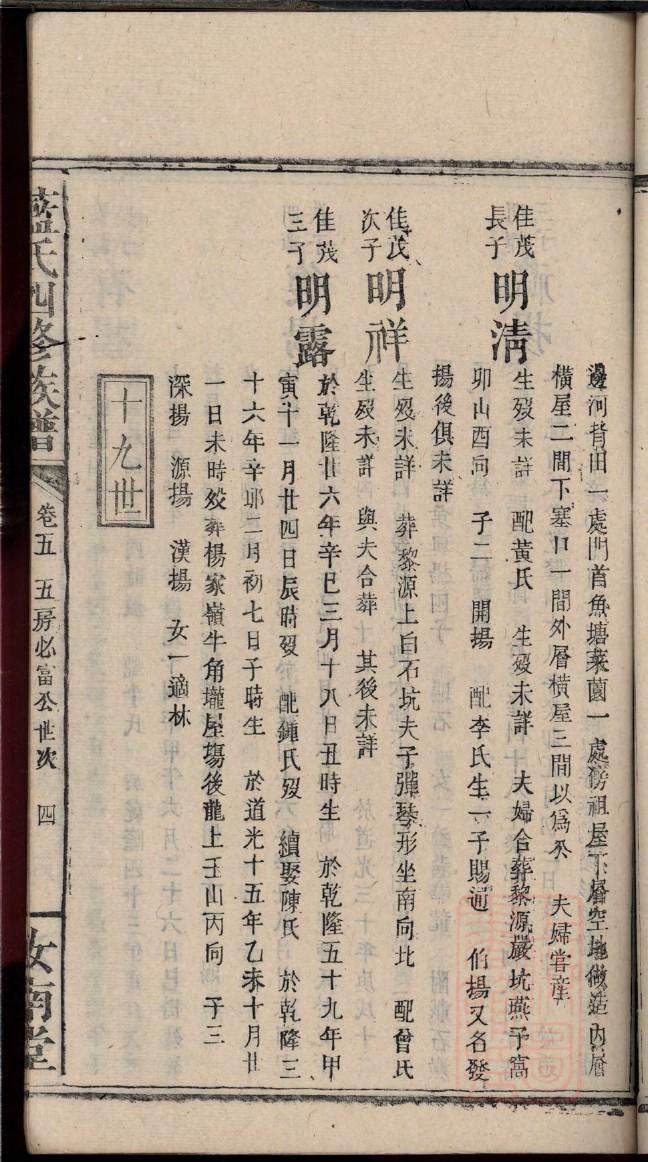 邊河背田一處門首魚塘菜園一處傍祖屋下層空地做造內層
橫屋二間下塞口一間外層橫屋三間以為公 夫婦嘗產
佳茂長子 明清 生歿未詳 配黃氏 生歿未詳 夫婦合葬黎源嚴坑燕子窩
卯山酉向 子二 開揚 配李氏生一子賜通 伯揚又名發
揚後俱未詳
佳茂次子 明祥 生歿未詳 葬黎源上白石坑夫子彈琴形坐南向北 配曾氏
生歿未詳 與夫合葬 其後未詳
佳茂三子 明露 於乾隆廿六年辛巳三月十八日丑時生 於乾隆五十九年甲
寅十一月廿四日辰時歿 配鍾氏歿 續娶陳氏 於乾隆三
十六年辛卯二月初七日子時生 於道光十五年乙未十月廿
一日未時歿葬楊家嶺牛角壠屋場後龍上壬山丙向 子三
深揚 源揚 漢揚 女一適林
十九世
藍氏四修族譜 卷五 五房必富公世次 四 汝南堂